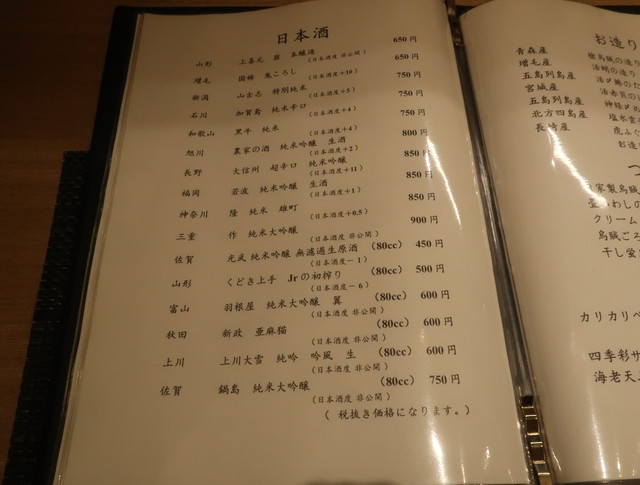 日本酒
山形 上喜元 翁 本醸造 650円
(日本酒度 非公開)
増毛 国稀 鬼ころし 650円
(日本酒度+10)
新潟 山古志 特別純米 750円
(日本酒度+5)
石川 加賀鳶 純米辛口 750円
(日本酒度+4)
和歌山 黒牛 純米 750円
(日本酒度+4)
旭川 農家の酒 純米吟醸 生酒 800円
(日本酒度+2)
長野 大信州 超辛口 純米吟醸 850円
(日本酒度+11)
福岡 若波 純米吟醸 生酒 850円
(日本酒度+1)
神奈川 隆 純米 雄町 850円
(日本酒度+0.5)
三重 作 純米大吟醸 900円
(日本酒度 非公開)
佐賀 光武 純米吟醸 無濾過生原酒 (80cc) 450円
(日本酒度-1)
山形 くどき上手 Jrの初搾り (80cc) 500円
(日本酒度-6)
富山 羽根屋 純米大吟醸 翼 (80cc) 600円
(日本酒度 非公開)
秋田 新政 亜麻猫 (80cc) 600円
(日本酒度 非公開)
上川 上川大雪 純吟 吟風 生 (80cc) 600円
(日本酒度 非公開)
佐賀 鍋島 純米大吟醸 (80cc) 750円
(日本酒度 非公開)
(税抜き価格になります。)
お造り
青森産
増毛産
五島列島産
宮城産
五島列島産
北方四島産
長崎産
お造
つ
自家製烏賊
クリーム
烏賊ごろ
干し蛍
カリカリベ
四季彩サ
海老天